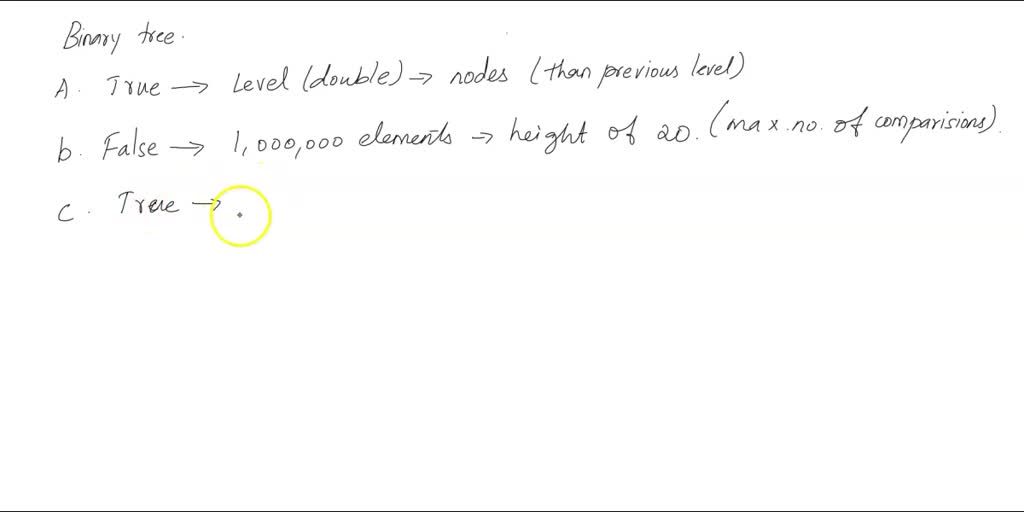 Binary tree.
A. True → Level (double) → nodes (than previous level)
b. False → 1,000,000 elements → height of 20. (max.no. of comparisions).
c. True →